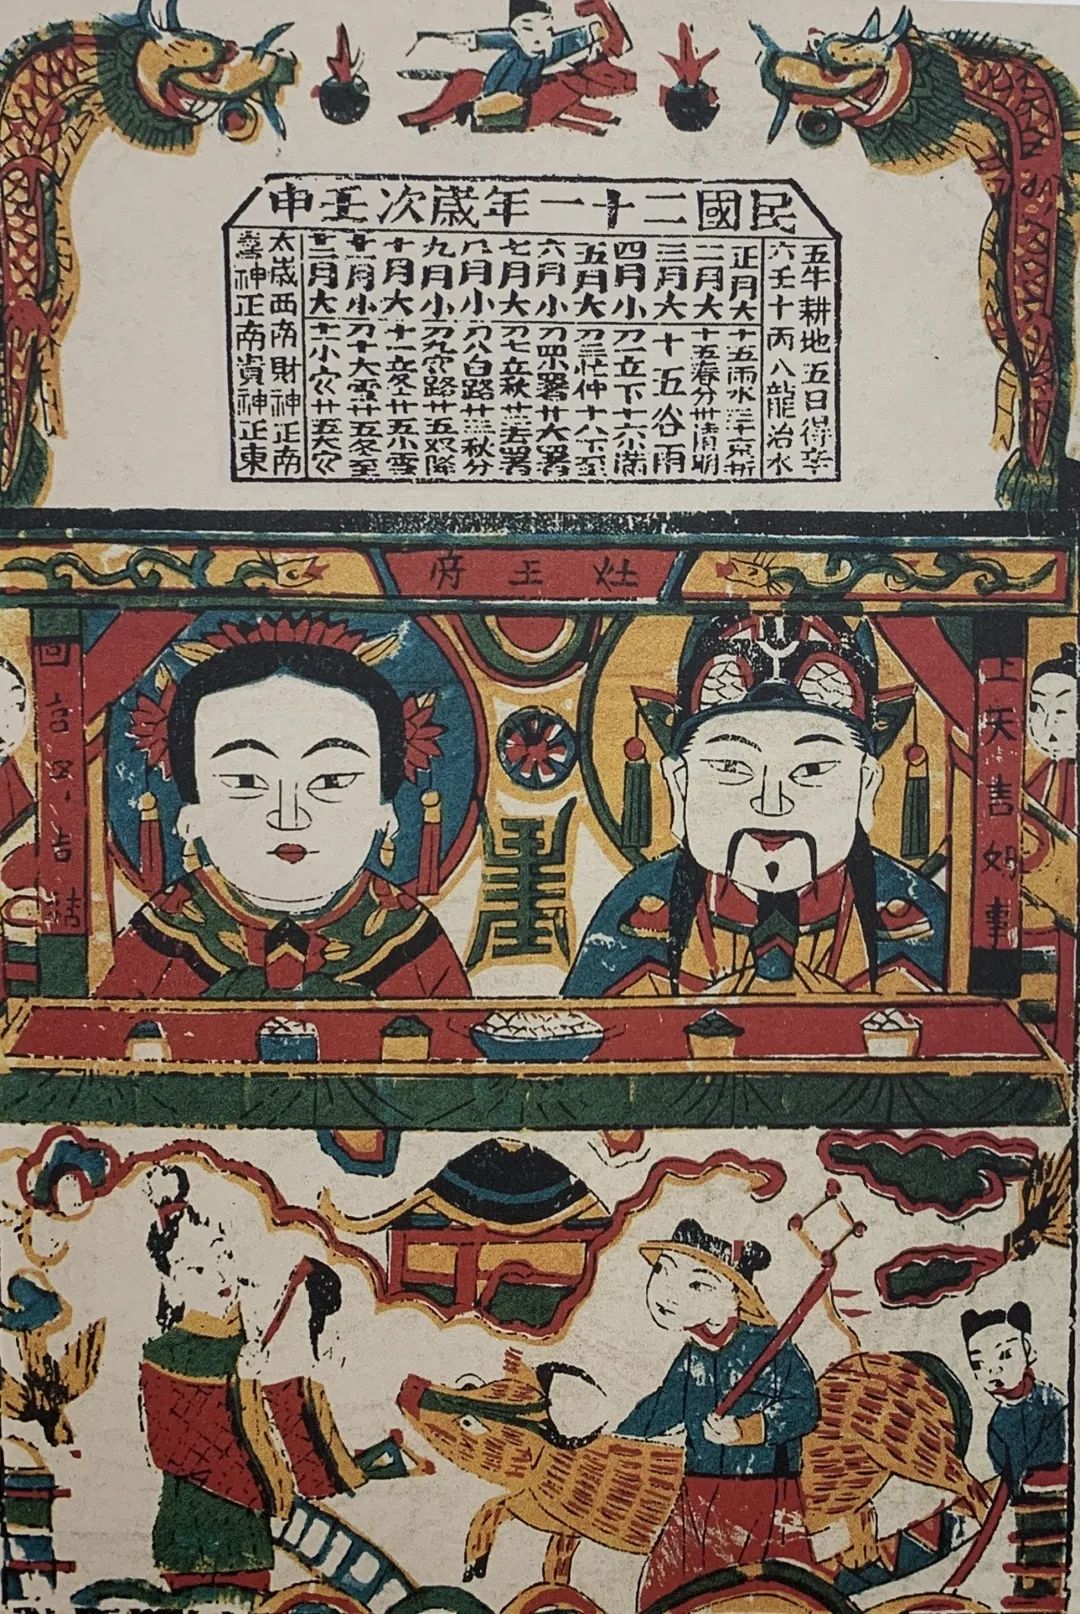 民國二十一年歲次壬申
五牛耕地五日得辛
六壬十丙八龍治水
正月大十五雨水
二月大十五春分卅清明
三月大十五谷雨
四月小刀一立下十六小滿
五月大刀三忙仲十八下至
六月小刀四小署廿大署
七月大刀七立秋廿三去署
八月小刀八白路廿三秋分
九月小刀九寒路廿五双降
十月大十一立冬廿五小雪
十一月小刀十大雪廿五冬至
十二月大十一小寒廿五大寒
太歲西南財神正南
喜神正南貴神正東
灶王府
上天言好事
回宮 吉